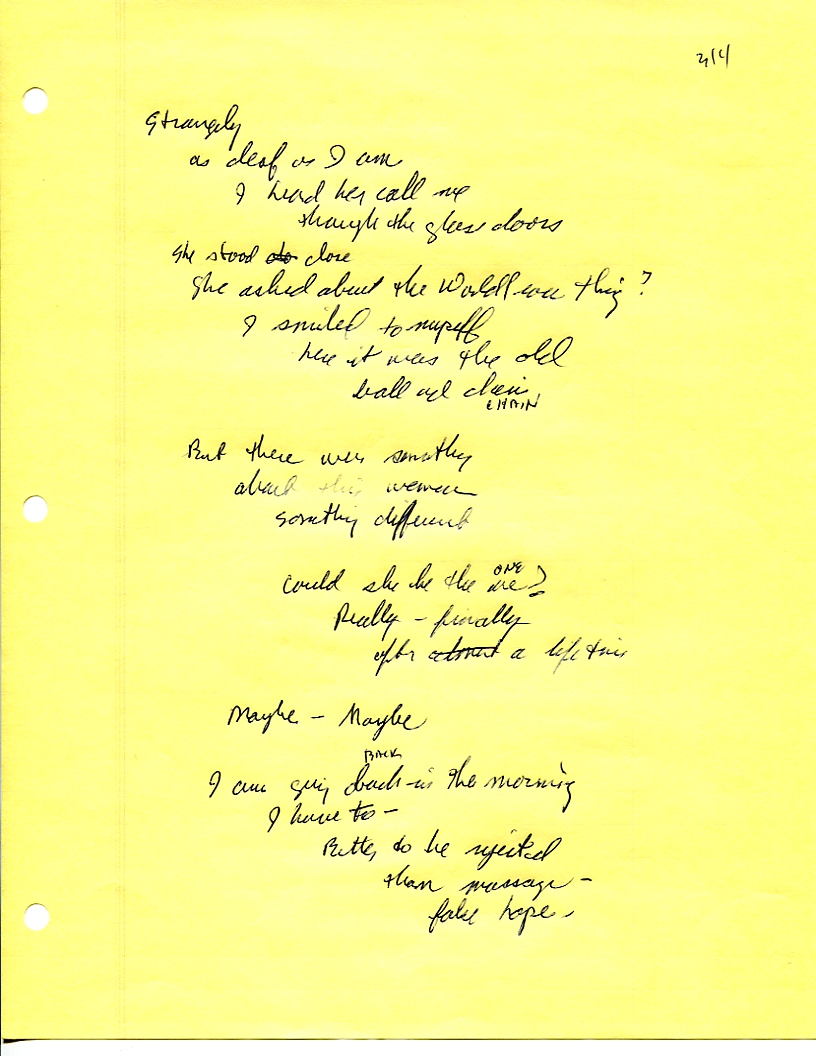 3/4
Strangely
as deaf as I am
I heard her call me
through the glass doors
She stood close
She asked about the World war thing?
I smiled to myself
here it was the old
ball and chain
CHAIN
But there was something
about this woman
something different
ONE
Could she be the one?
Really - finally
after almost a life time
Maybe - Maybe
BACK
I am going back in the morning
I have to -
Better to be rejected
than massage -
false hope.